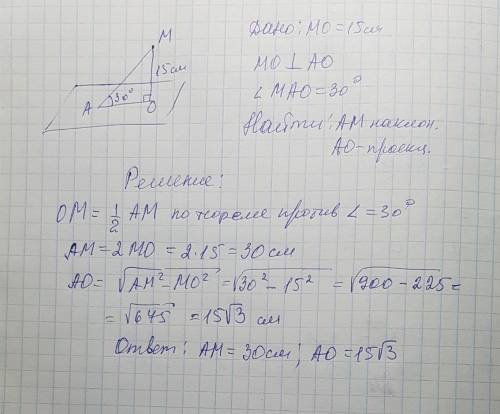 M
15см
A 30° O
Дано: MO = 15см
MO ⊥ AO
∠ MAO = 30°
Найти: AM наклон.
AO - проекц.
Решение:
OM = 1/2 AM по теореме против ∠ = 30°
AM = 2 MO = 2·15 = 30 см
AO = √AM² - MO² = √30² - 15² = √900 - 225 =
= √645 = 15√3 см
Ответ: AM = 30см; AO = 15√3